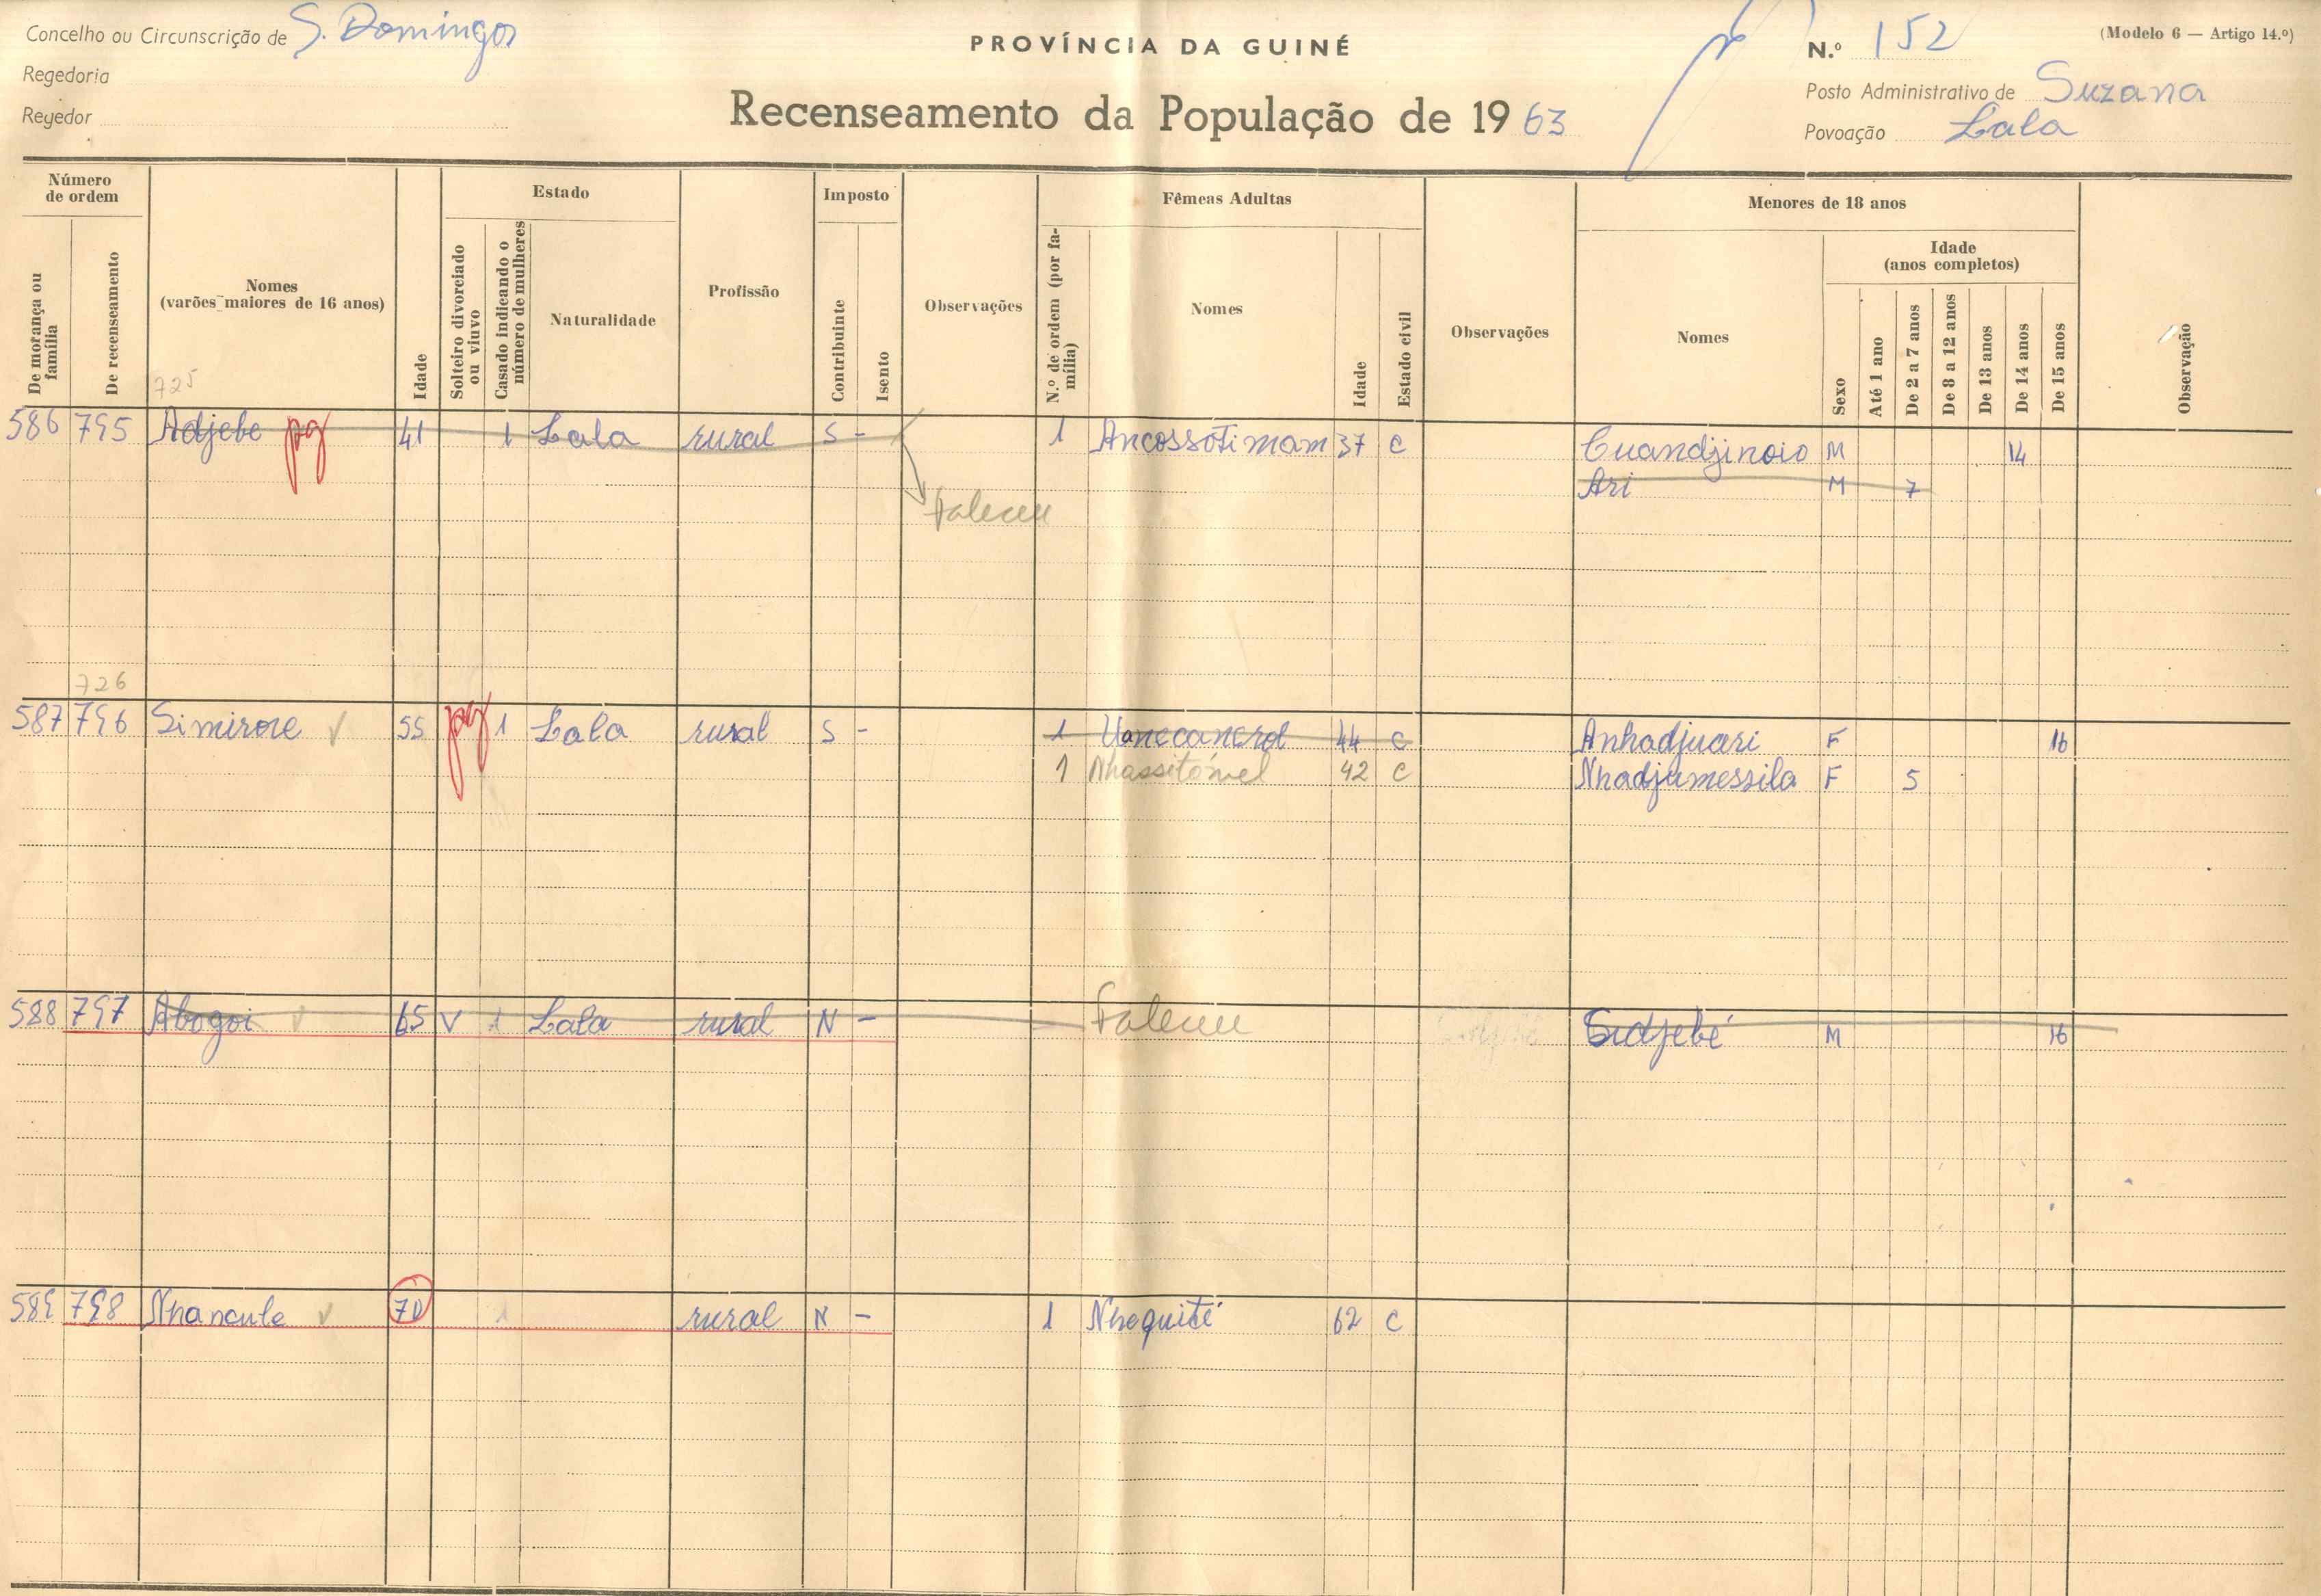 Concelho ou Circunscrição de S. Domingos
Regedoria
Regedor
PROVÍNCIA DA GUINÉ
Recenseamento da População de 1963
N.º 152
(Modelo 6 — Artigo 14.º)
Posto Administrativo de Suzana
Povoação Lala
Número de ordem
De morança ou família
De recenseamento
Nomes (varões maiores de 16 anos)
Idade
Estado
Solteiro divorciado ou viuvo
Casado indicando o número de mulheres
Naturalidade
Profissão
Imposto
Contribuinte
Isento
Observações
Fêmeas Adultas
N.º de ordem (por família)
Nomes
Idade
Estado civil
Observações
Menores de 18 anos
Nomes
Sexo
Idade (anos completos)
Até 1 ano
De 2 a 7 anos
De 8 a 12 anos
De 13 anos
De 14 anos
De 15 anos
Observação
725
586 795 Adjebe pg 41 1 Lala rural S - 1 Ancossotimam 37 C Cuandjinoio M 14
Ari M 7
Faleceu
726
587 796 Simirore 55 pg 1 Lala rural S - 1 44 C Anhadjuari F 16
1 42 C Nhadjumessila F 5
588 797 Abogoi 65 V 1 Lala rural N - Faleceu Sidjebé M 16
589 798 Nhancule 70 1 rural N - 1 Nhequité 62 C